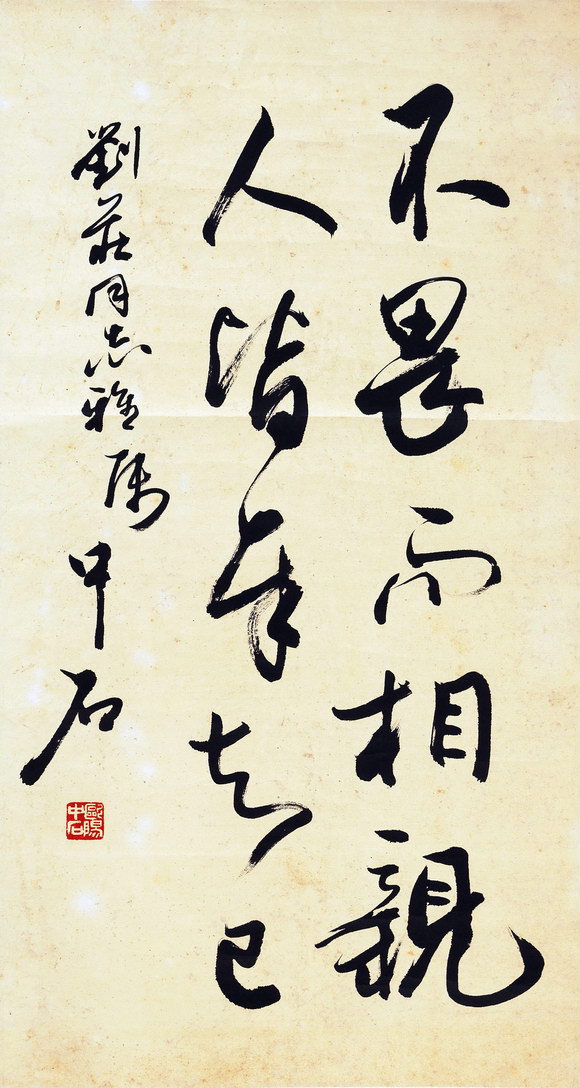 不畏而相親
人皆知己
劉莊同志雅属 中石
歐陽中石